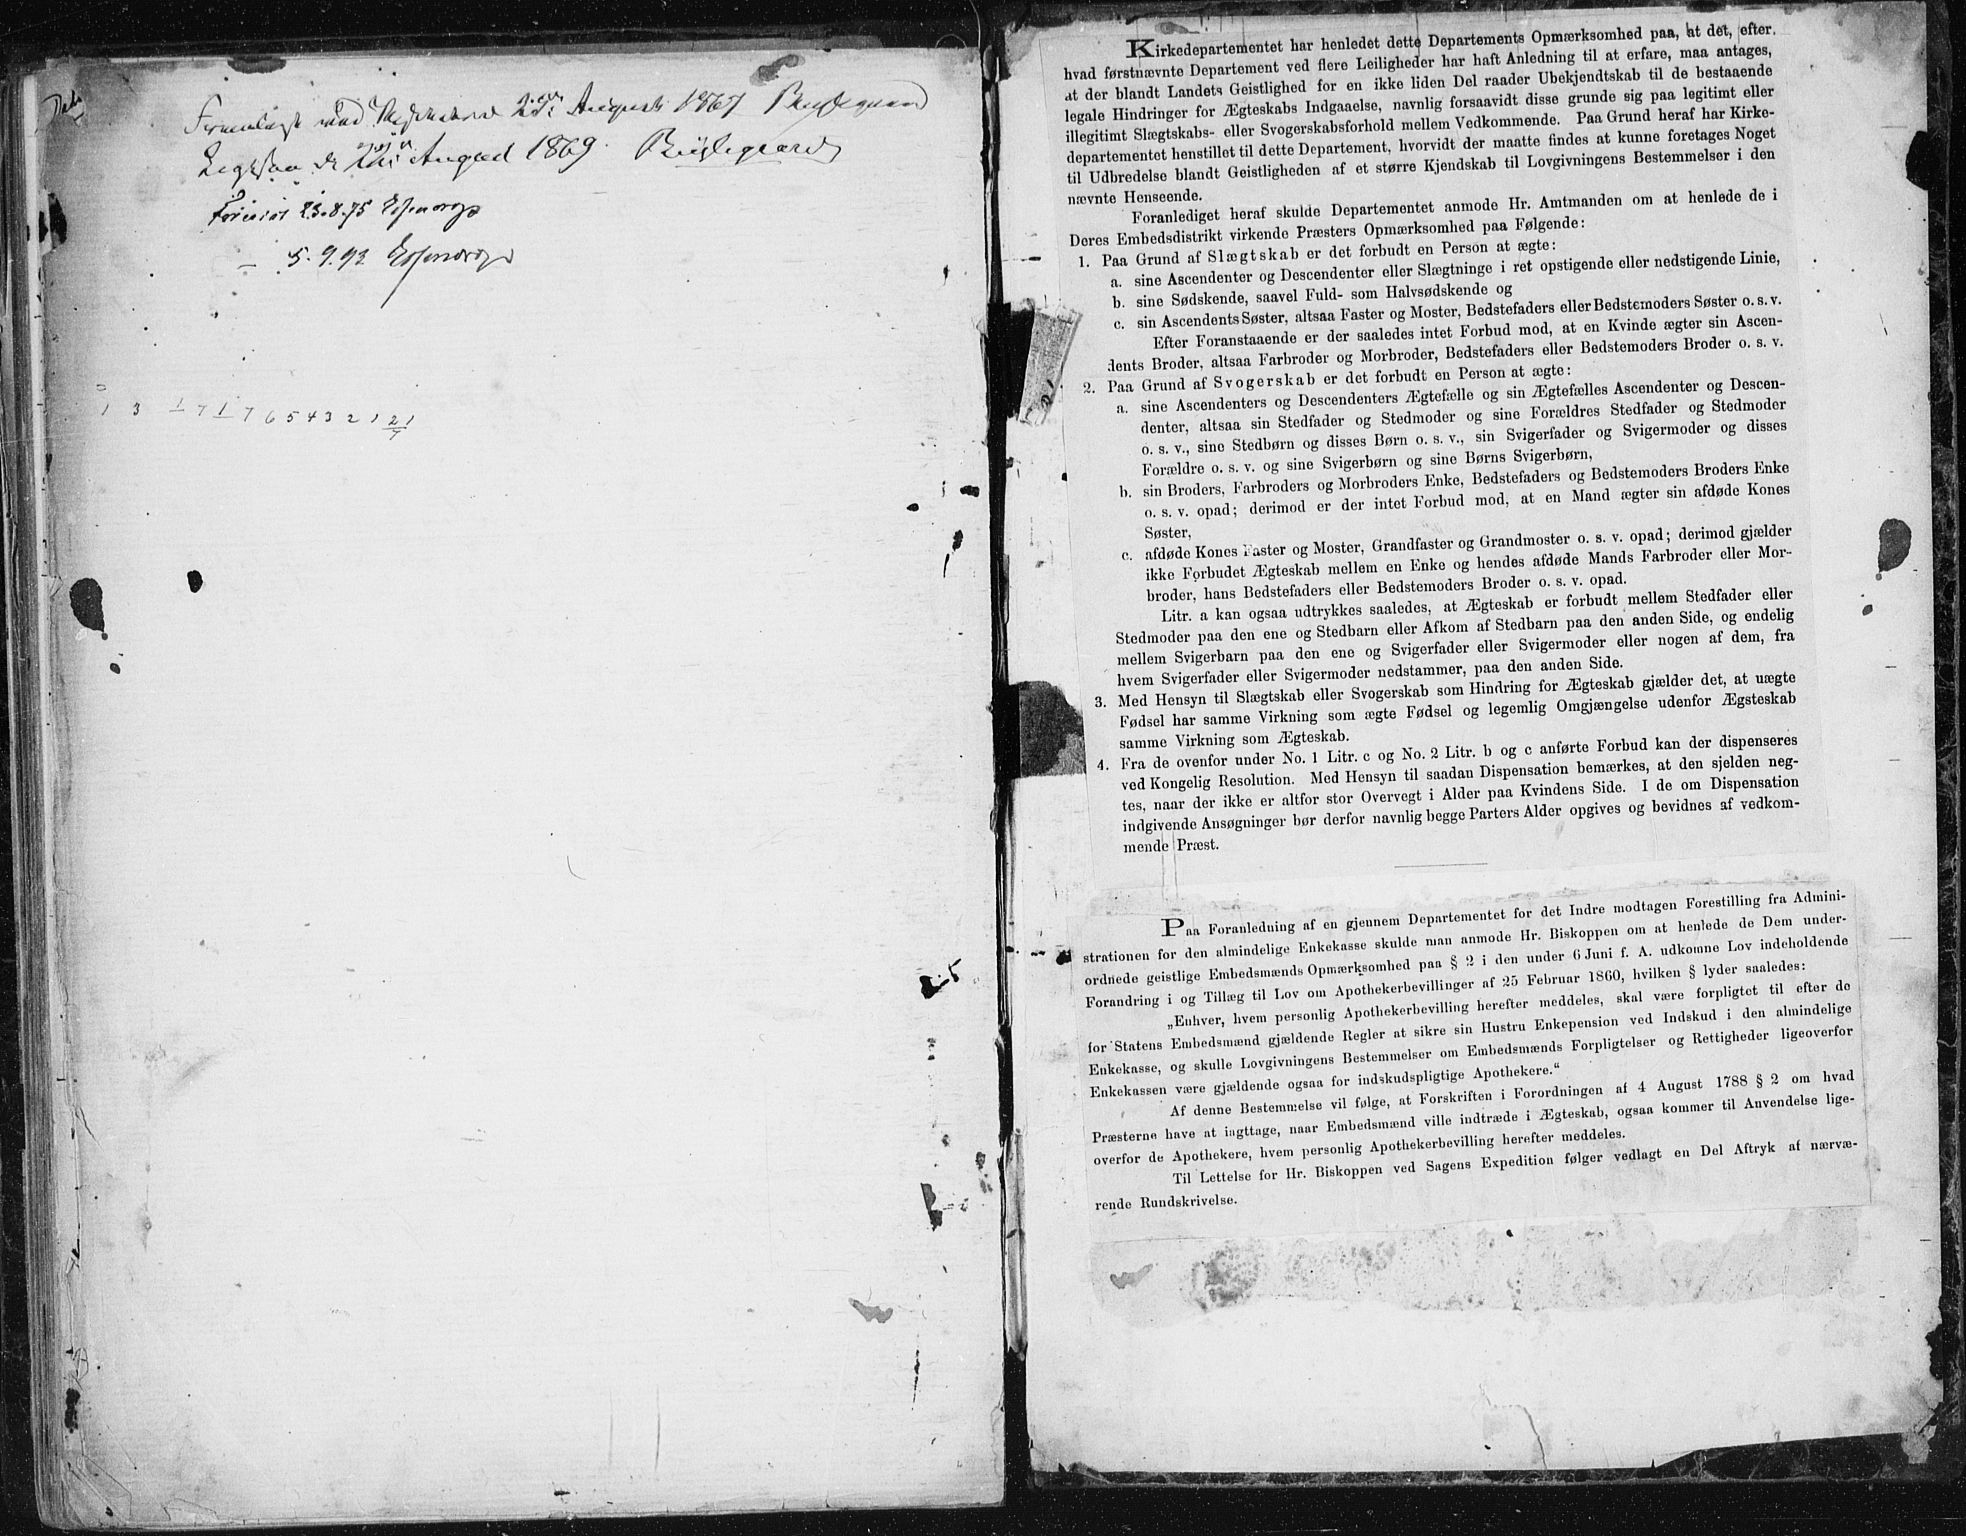 August 1867
August 1869.
23.8.75
— 5.9.92
1 3 1 7 1 7 6 5 4 3 2 1 21
Kirkedepartementet har henledet dette Departements Opmærksomhed paa, at det, efter
hvad førstnævnte Departement ved flere Leiligheder har haft Anledning til at erfare, maa antages,
at der blandt Landets Geistlighed for en ikke liden Del raader Ubekjendtskab til de bestaaende
legale Hindringer for Ægteskabs Indgaaelse, navnlig forsaavidt disse grunde sig paa legitimt eller
illegitimt Slægtskabs- eller Svogerskabsforhold mellem Vedkommende. Paa Grund heraf har Kirke-
departementet henstillet til dette Departement, hvorvidt der maatte findes at kunne foretages Noget
til Udbredelse blandt Geistligheden af et større Kjendskab til Lovgivningens Bestemmelser i den
nævnte Henseende.
Foranlediget heraf skulde Departementet anmode Hr. Amtmanden om at henlede de i
Deres Embedsdistrikt virkende Præsters Opmærksomhed paa Følgende:
1. Paa Grund af Slægtskab er det forbudt en Person at ægte:
a. sine Ascendenter og Descendenter eller Slægtninge i ret opstigende eller nedstigende Linie,
b. sine Sødskende, saavel Fuld- som Halvsødskende og
c. sin Ascendents Søster, altsaa Faster og Moster, Bedstefaders eller Bedstemoders Søster o. s. v.
Efter Foranstaaende er der saaledes intet Forbud mod, at en Kvinde ægter sin Ascen-
dents Broder, altsaa Farbroder og Morbroder, Bedstefaders eller Bedstemoders Broder o. s. v.
2. Paa Grund af Svogerskab er det forbudt en Person at ægte:
a. sine Ascendenters og Descendenters Ægtefælle og sin Ægtefælles Ascendenter og Descen-
denter, altsaa sin Stedfader og Stedmoder og sine Forældres Stedfader og Stedmoder
o. s. v., sine Stedbørn og disses Børn o. s. v., sin Svigerfader og Svigermoder og disses
Forældre o. s. v. og sine Svigerbørn og sine Børns Svigerbørn,
b. sin Broders, Farbroders og Morbroders Enke, Bedstefaders og Bedstemoders Broders Enke
o. s. v. opad; derimod er der intet Forbud mod, at en Mand ægter sin afdøde Kones
Søster,
c. afdøde Kones Faster og Moster, Grandfaster og Grandmoster o. s. v. opad; derimod gjælder
ikke Forbudet Ægteskab mellem en Enke og hendes afdøde Mands Farbroder eller Mor-
broder, hans Bedstefaders eller Bedstemoders Broder o. s. v. opad.
Litr. a kan ogsaa udtrykkes saaledes, at Ægteskab er forbudt mellem Stedfader eller
Stedmoder paa den ene og Stedbarn eller Afkom af Stedbarn paa den anden Side, og endelig
mellem Svigerbarn paa den ene og Svigerfader eller Svigermoder eller nogen af dem, fra
hvem Svigerfader eller Svigermoder nedstammer, paa den anden Side.
3. Med Hensyn til Slægtskab eller Svogerskab som Hindring for Ægteskab gjælder det, at uægte
Fødsel har samme Virkning som ægte Fødsel og legemlig Omgjængelse udenfor Ægsteskab
samme Virkning som Ægteskab.
4. Fra de ovenfor under No. 1 Litr. c og No. 2 Litr. b og c anførte Forbud kan der dispenseres
ved Kongelig Resolution. Med Hensyn til saadan Dispensation bemærkes, at den sjelden neg-
tes, naar der ikke er altfor stor Overvegt i Alder paa Kvindens Side. I de om Dispensation
indgivende Ansøgninger bør derfor navnlig begge Parters Alder opgives og bevidnes af vedkom-
mende Præst.
Paa Foranledning af en gjennem Departementet for det Indre modtagen Forestilling fra Admini-
strationen for den almindelige Enkekasse skulde man anmode Hr. Biskoppen om at henlede de Dem under-
ordnede geistlige Embedsmænds Opmærksomhed paa § 2 i den under 6 Juni f. A. udkomne Lov indeholdende
Forandring i og Tillæg til Lov om Apothekerbevillinger af 25 Februar 1860, hvilken § lyder saaledes:
„Enhver, hvem personlig Apothekerbevilling herefter meddeles, skal være forpligtet til efter de
for Statens Embedsmænd gjældende Regler at sikre sin Hustru Enkepension ved Indskud i den almindelige
Enkekasse, og skulle Lovgivningens Bestemmelser om Embedsmænds Forpligtelser og Rettigheder ligeoverfor
Enkekassen være gjældende ogsaa for indskudspligtige Apothekere.“
Af denne Bestemmelse vil følge, at Forskriften i Forordningen af 4 August 1788 § 2 om hvad
Præsterne have at iagttage, naar Embedsmænd ville indtræde i Ægteskab, ogsaa kommer til Anvendelse lige-
overfor de Apothekere, hvem personlig Apothekerbevilling herefter meddeles.
Til Lettelse for Hr. Biskoppen ved Sagens Expedition følger vedlagt en Del Aftryk af nærvæ-
rende Rundskrivelse.